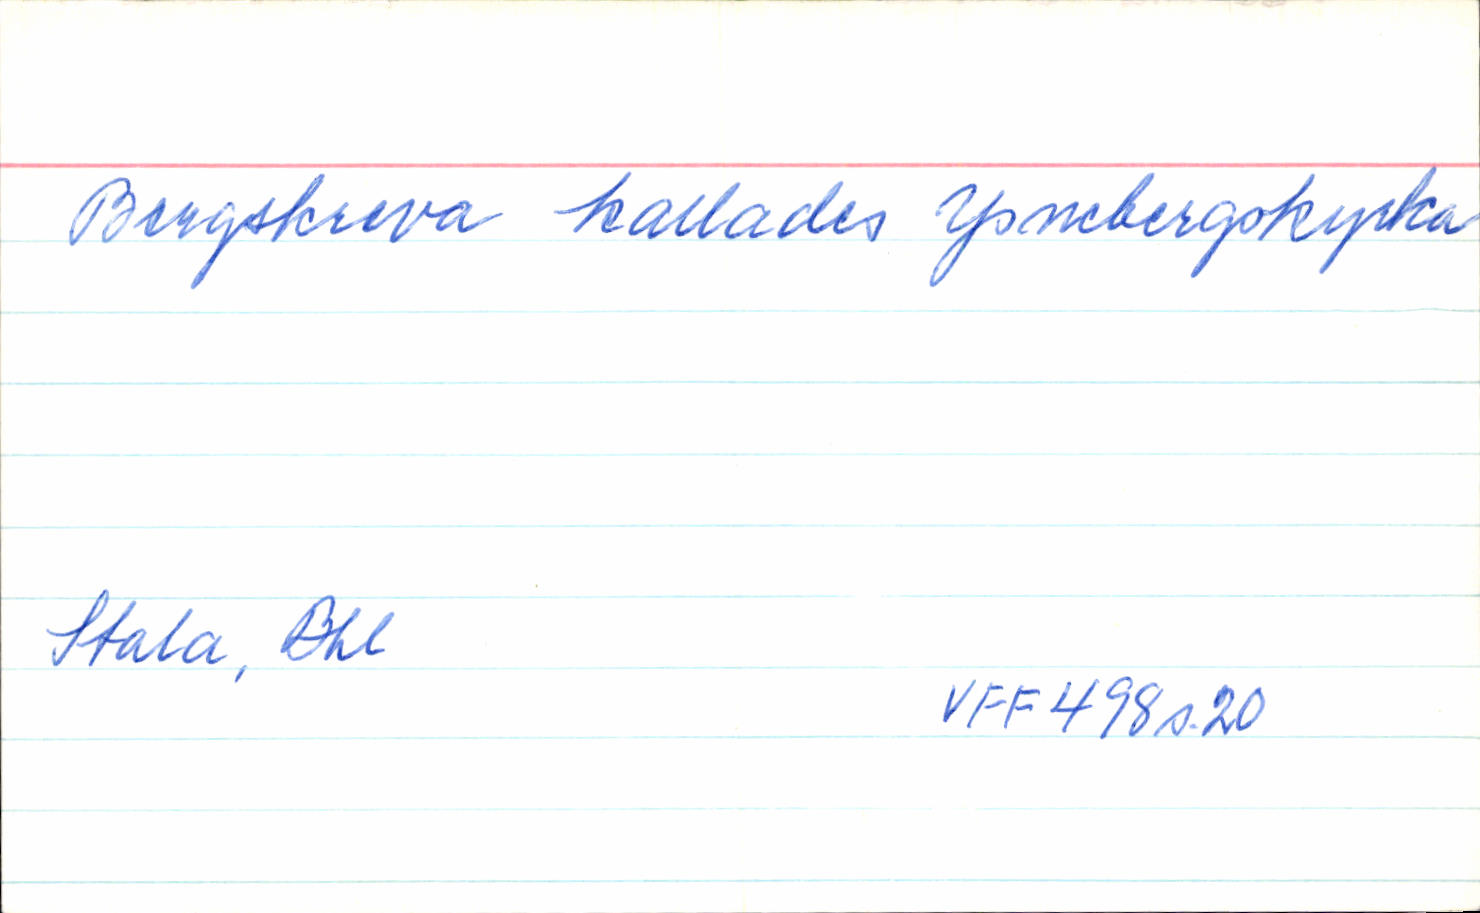 Bergskreva kallades Ysnebergskyrka
Stala, Bhl
VFF 498 s. 20